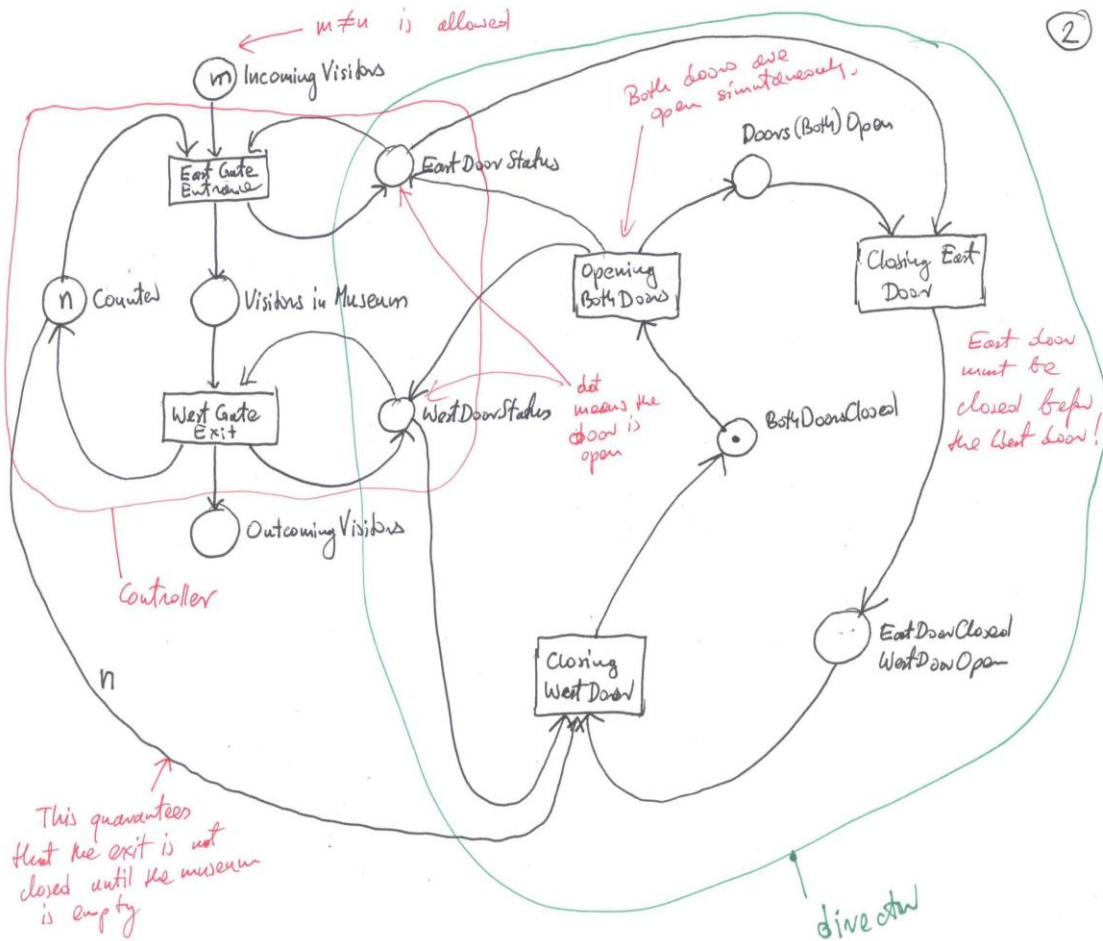 2
m≠n is allowed
m Incoming Visitors
Both doors are
open simultaneously.
Doors (Both) Open
East Gate
Entrance
East Door Status
Opening
Both Doors
Closing East
Door
n Counter
Visitors in Museum
East door
must be
closed before
the West door!
West Gate
Exit
West Door Status
dot
means the
door is
open
Both Doors Closed
Outcoming Visitors
Controller
East Door Closed
West Door Open
Closing
West Door
n
This guarantees
that the exit is not
closed until the museum
is empty
director